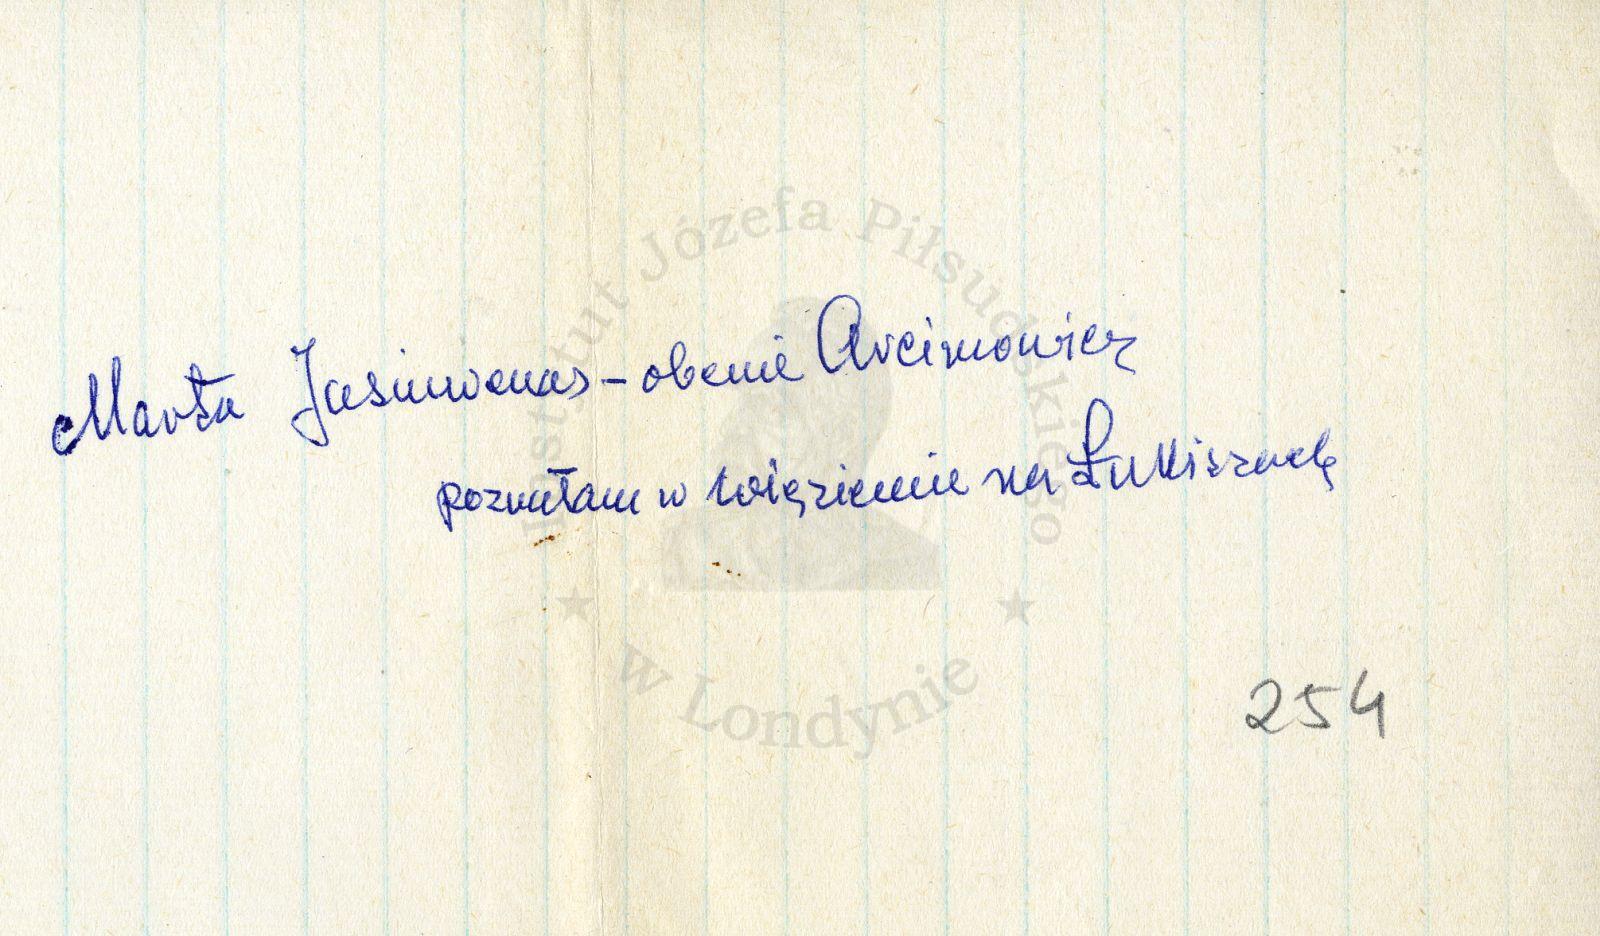 Marta Jasiuwenas – obecnie Arcimowicz
poznałam w więzienie na Łukiszach
254
Instytut Józefa Piłsudskiego
w Londynie